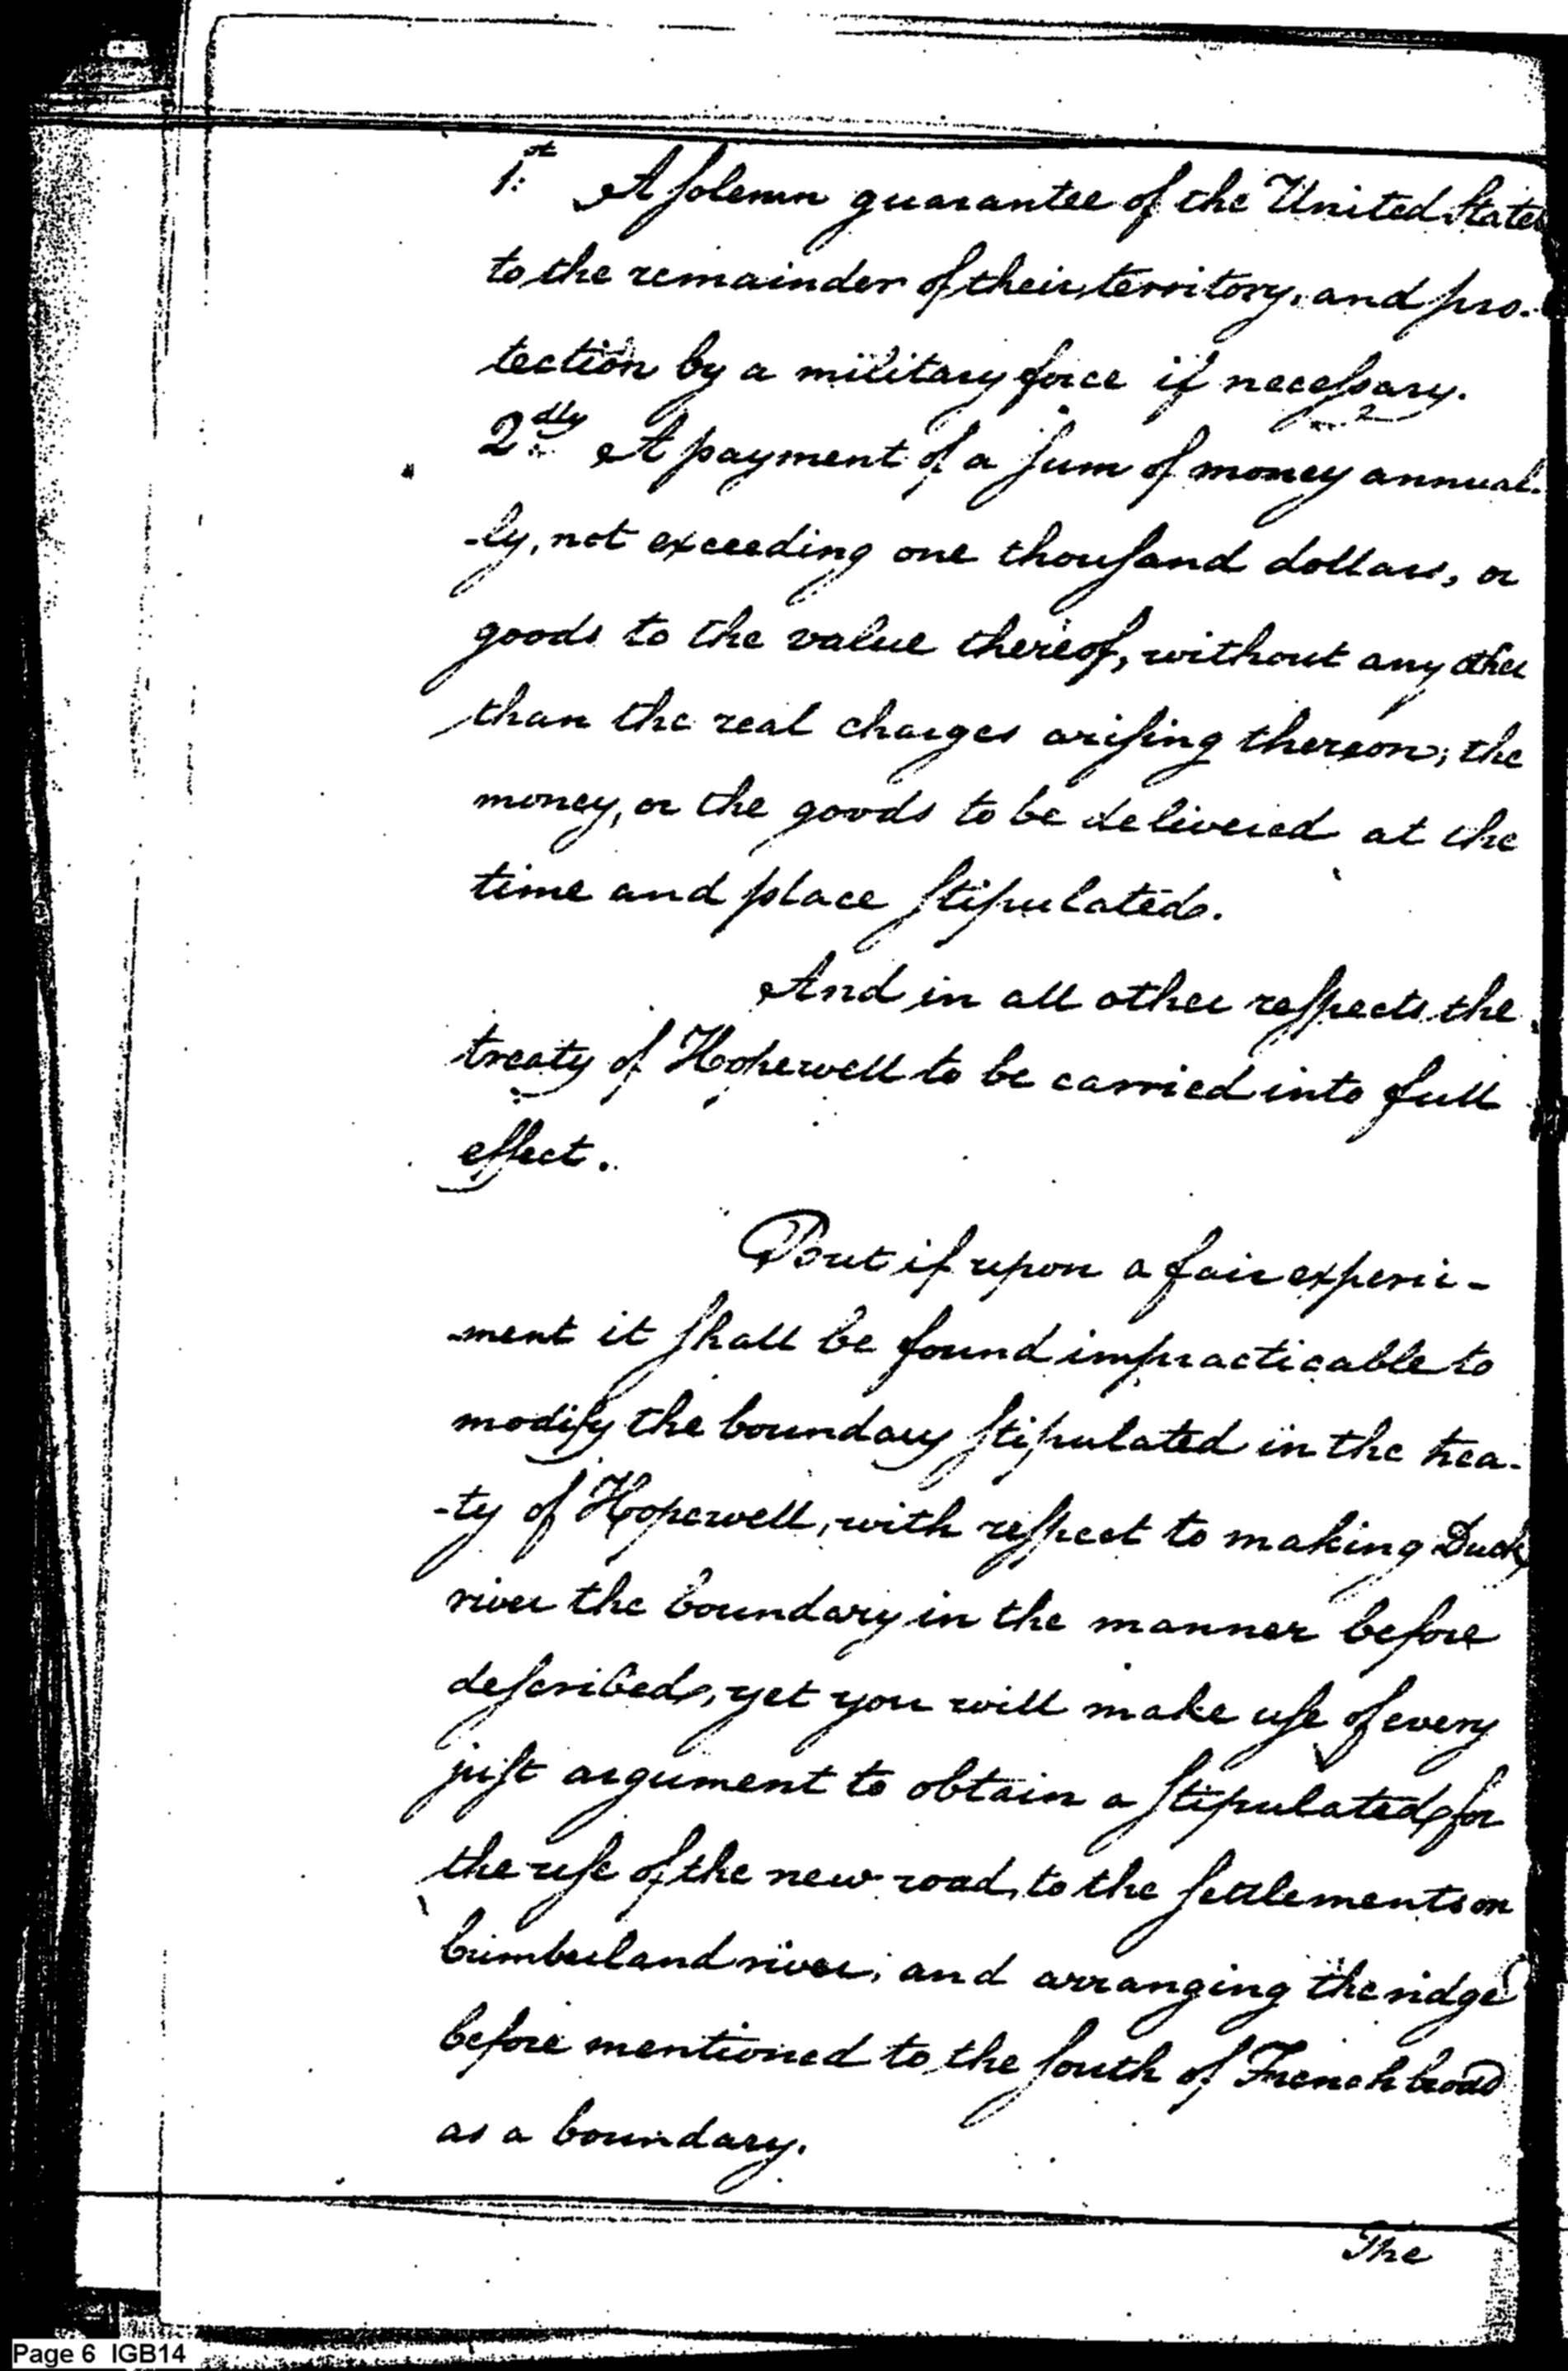 1st: A solemn guarantee of the United States
to the remainder of their territory, and pro-
tection by a military force if necessary.
2dly: A payment of a sum of money annual-
-ly, not exceeding one thousand dollars, or
goods to the value thereof, without any other
than the real charges arising thereon; the
money, or the goods to be delivered at the
time and place stipulated.
And in all other respects the
treaty of Hopewell to be carried into full
effect.
But if upon a fair experi-
-ment it shall be found impracticable to
modify the boundary stipulated in the trea-
-ty of Hopewell, with respect to making Duck
river the boundary in the manner before
described, yet you will make use of every
just argument to obtain a stipulated for
the use of the new road, to the settlements on
Cumberland river, and arranging the ridge
before mentioned to the south of French broad
as a boundary.
The
Page 6 IGB14